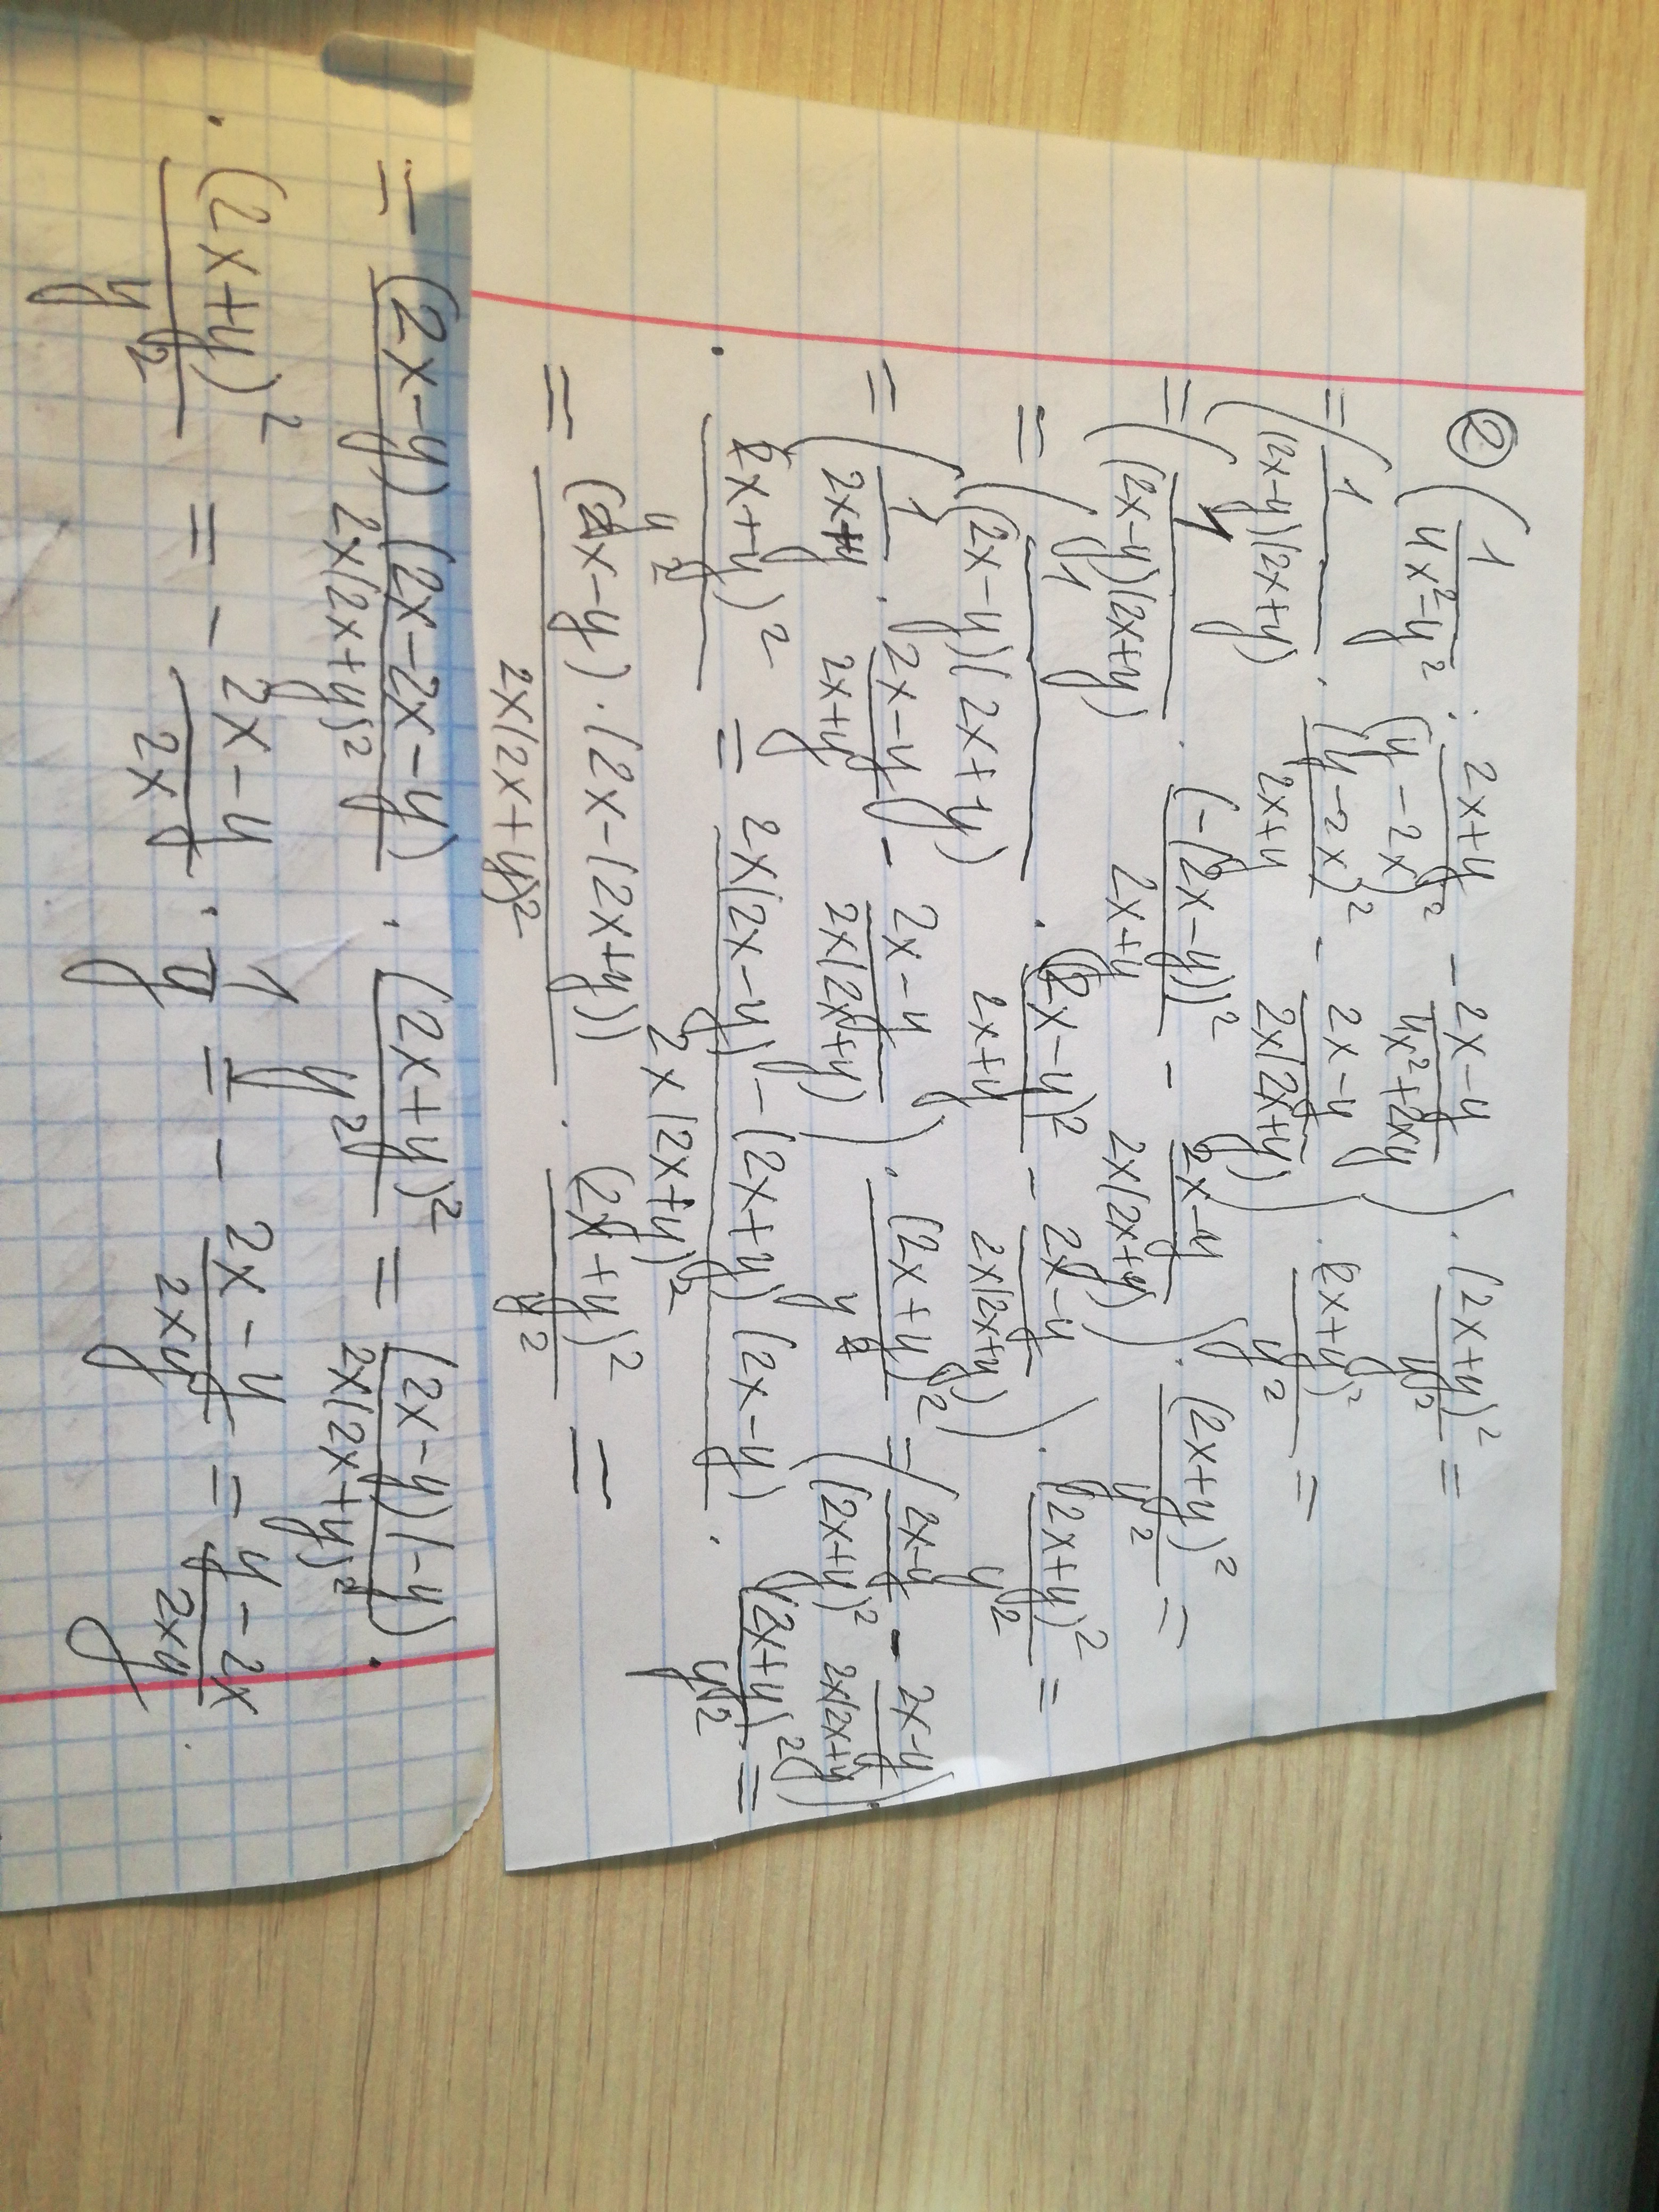 ② (1/(4x²-y²) : (2x+y)/(y-2x)² - (2x-y)/(4x²+2xy)) · (2x+y)²/y² =
= (1/((2x-y)(2x+y)) · (y-2x)²/(2x+y) - (2x-y)/(2x(2x+y))) · (2x+y)²/y² =
= (1/((2x-y)(2x+y)) · (-(2x-y))²/(2x+y) - (2x-y)/(2x(2x+y))) · (2x+y)²/y² =
= (1/((2x-y)(2x+y)) · (2x-y)²/(2x+y) - (2x-y)/(2x(2x+y))) · (2x+y)²/y² =
= (1/(2x+y) · (2x-y)/(2x+y) - (2x-y)/(2x(2x+y))) · (2x+y)²/y² = ((2x-y)/(2x+y)² - (2x-y)/(2x(2x+y))) ·
· (2x+y)²/y² = (2x(2x-y) - (2x+y)(2x-y))/(2x(2x+y)²) · (2x+y)²/y² =
= ((2x-y) · (2x-(2x+y)))/(2x(2x+y)²) · (2x+y)²/y² =
= ((2x-y)(2x-2x-y))/(2x(2x+y)²) · (2x+y)²/y² = ((2x-y)(-y))/(2x(2x+y)²) ·
· (2x+y)²/y² = - (2x-y)/2x · 1/y = - (2x-y)/2xy = (y-2x)/2xy